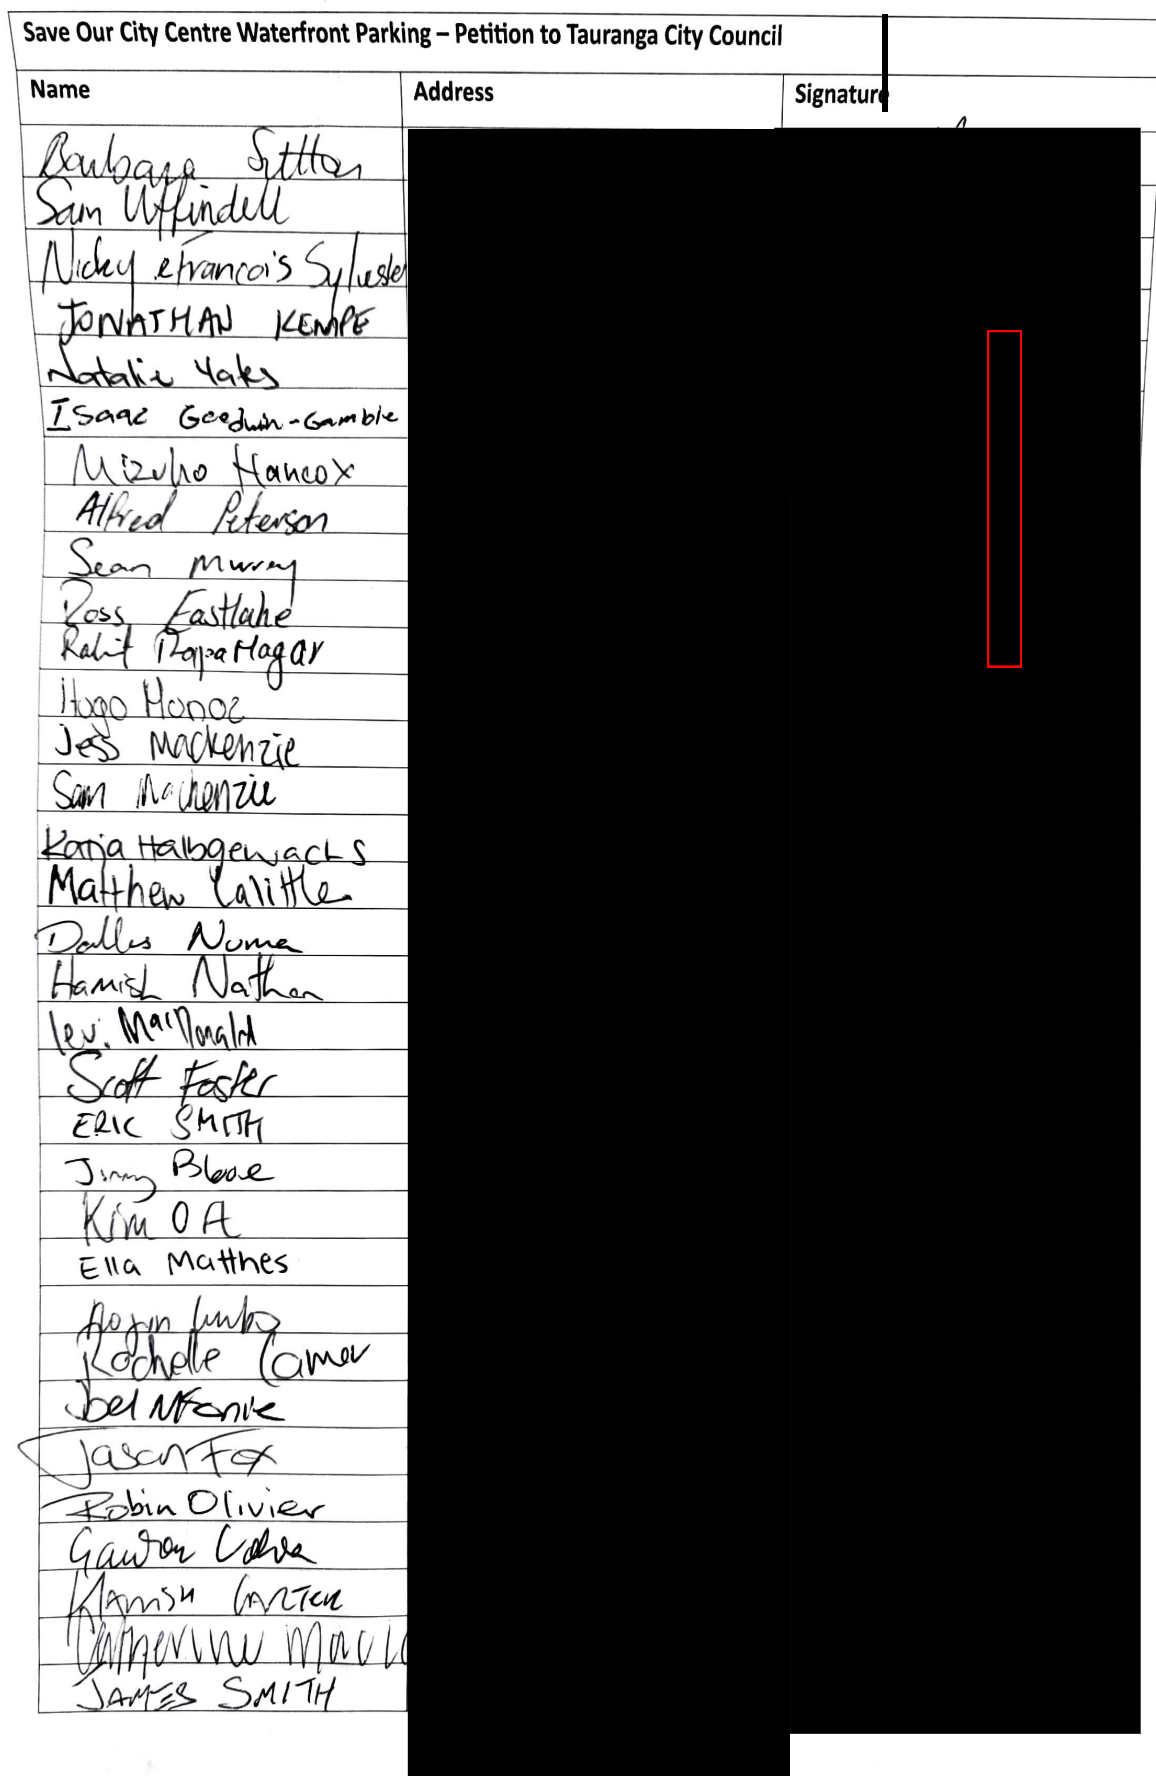 Save Our City Centre Waterfront Parking – Petition to Tauranga City Council
Name Address Signature
Barbara Sutton
Sam Uffindell
Nicky & Francois Sylvester
JONATHAN KEMPE
Natalie Yaks
Isaac Goodwin-Gamble
Mizuho Hancox
Alfred Peterson
Sean Murray
Ross Eastlake
Hugo Monoz
Jess Mackenzie
Sam Mackenzie
Katja Halbgewachs
Matthew Calittle
Dallas Numa
Hamish Nathan
Levi MacDonald
Scott Foster
ERIC SMITH
Jimmy
Kim O A
Ella Matthes
Rochelle
Joel
Jason Fox
Robin Olivier
HAMISH CARTER
Catherine
JAMES SMITH